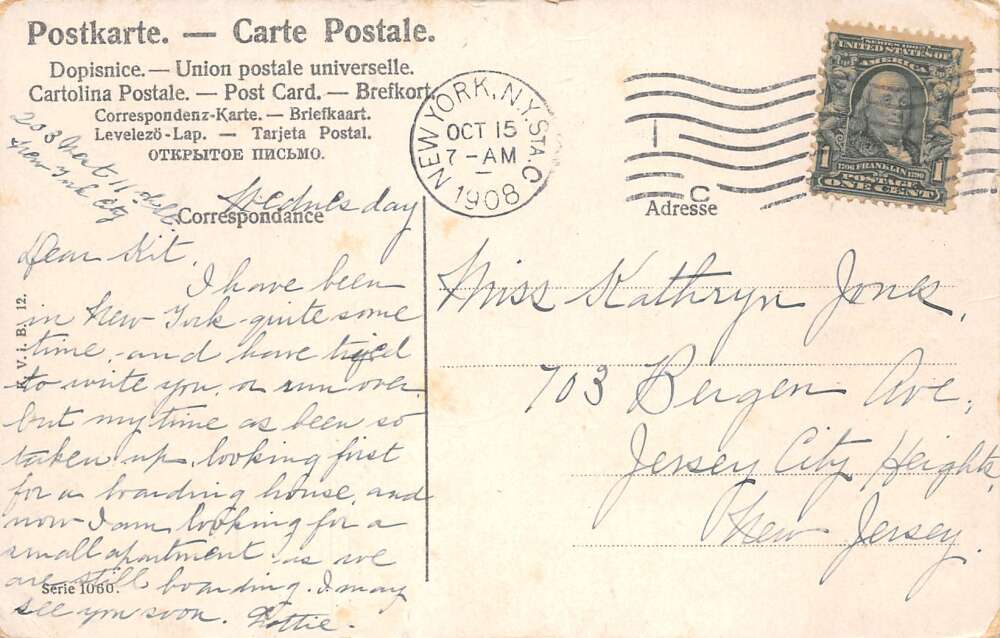 Postkarte. — Carte Postale.
Dopisnice. — Union postale universelle.
Cartolina Postale. — Post Card. — Brefkort
Correspondenz-Karte. — Briefkaart.
Levelező-Lap. — Tarjeta Postal.
ОТКРЫТОЕ ПИСЬМО.
NEW YORK, N.Y. STA. C
OCT 15
7-AM
1908
C
SERIES 1902
UNITED STATES OF
AMERICA
1
1706 FRANKLIN 1790
POSTAGE
ONE CENT
Correspondance
Adresse
233 West 11th
New York City
Wednesday
Dear Kit,
I have been
in New York quite some
time, and have tryed
to write you, or run over
but my time as been so
taken up, looking first
for a boarding house, and
now I am looking for a
small apartment as we
are still boarding. I may
see you soon. Lottie.
Miss Kathryn Jones,
703 Bergen Ave,
Jersey City Heights,
New Jersey.
V. i. B. 12.
Serie 1060.